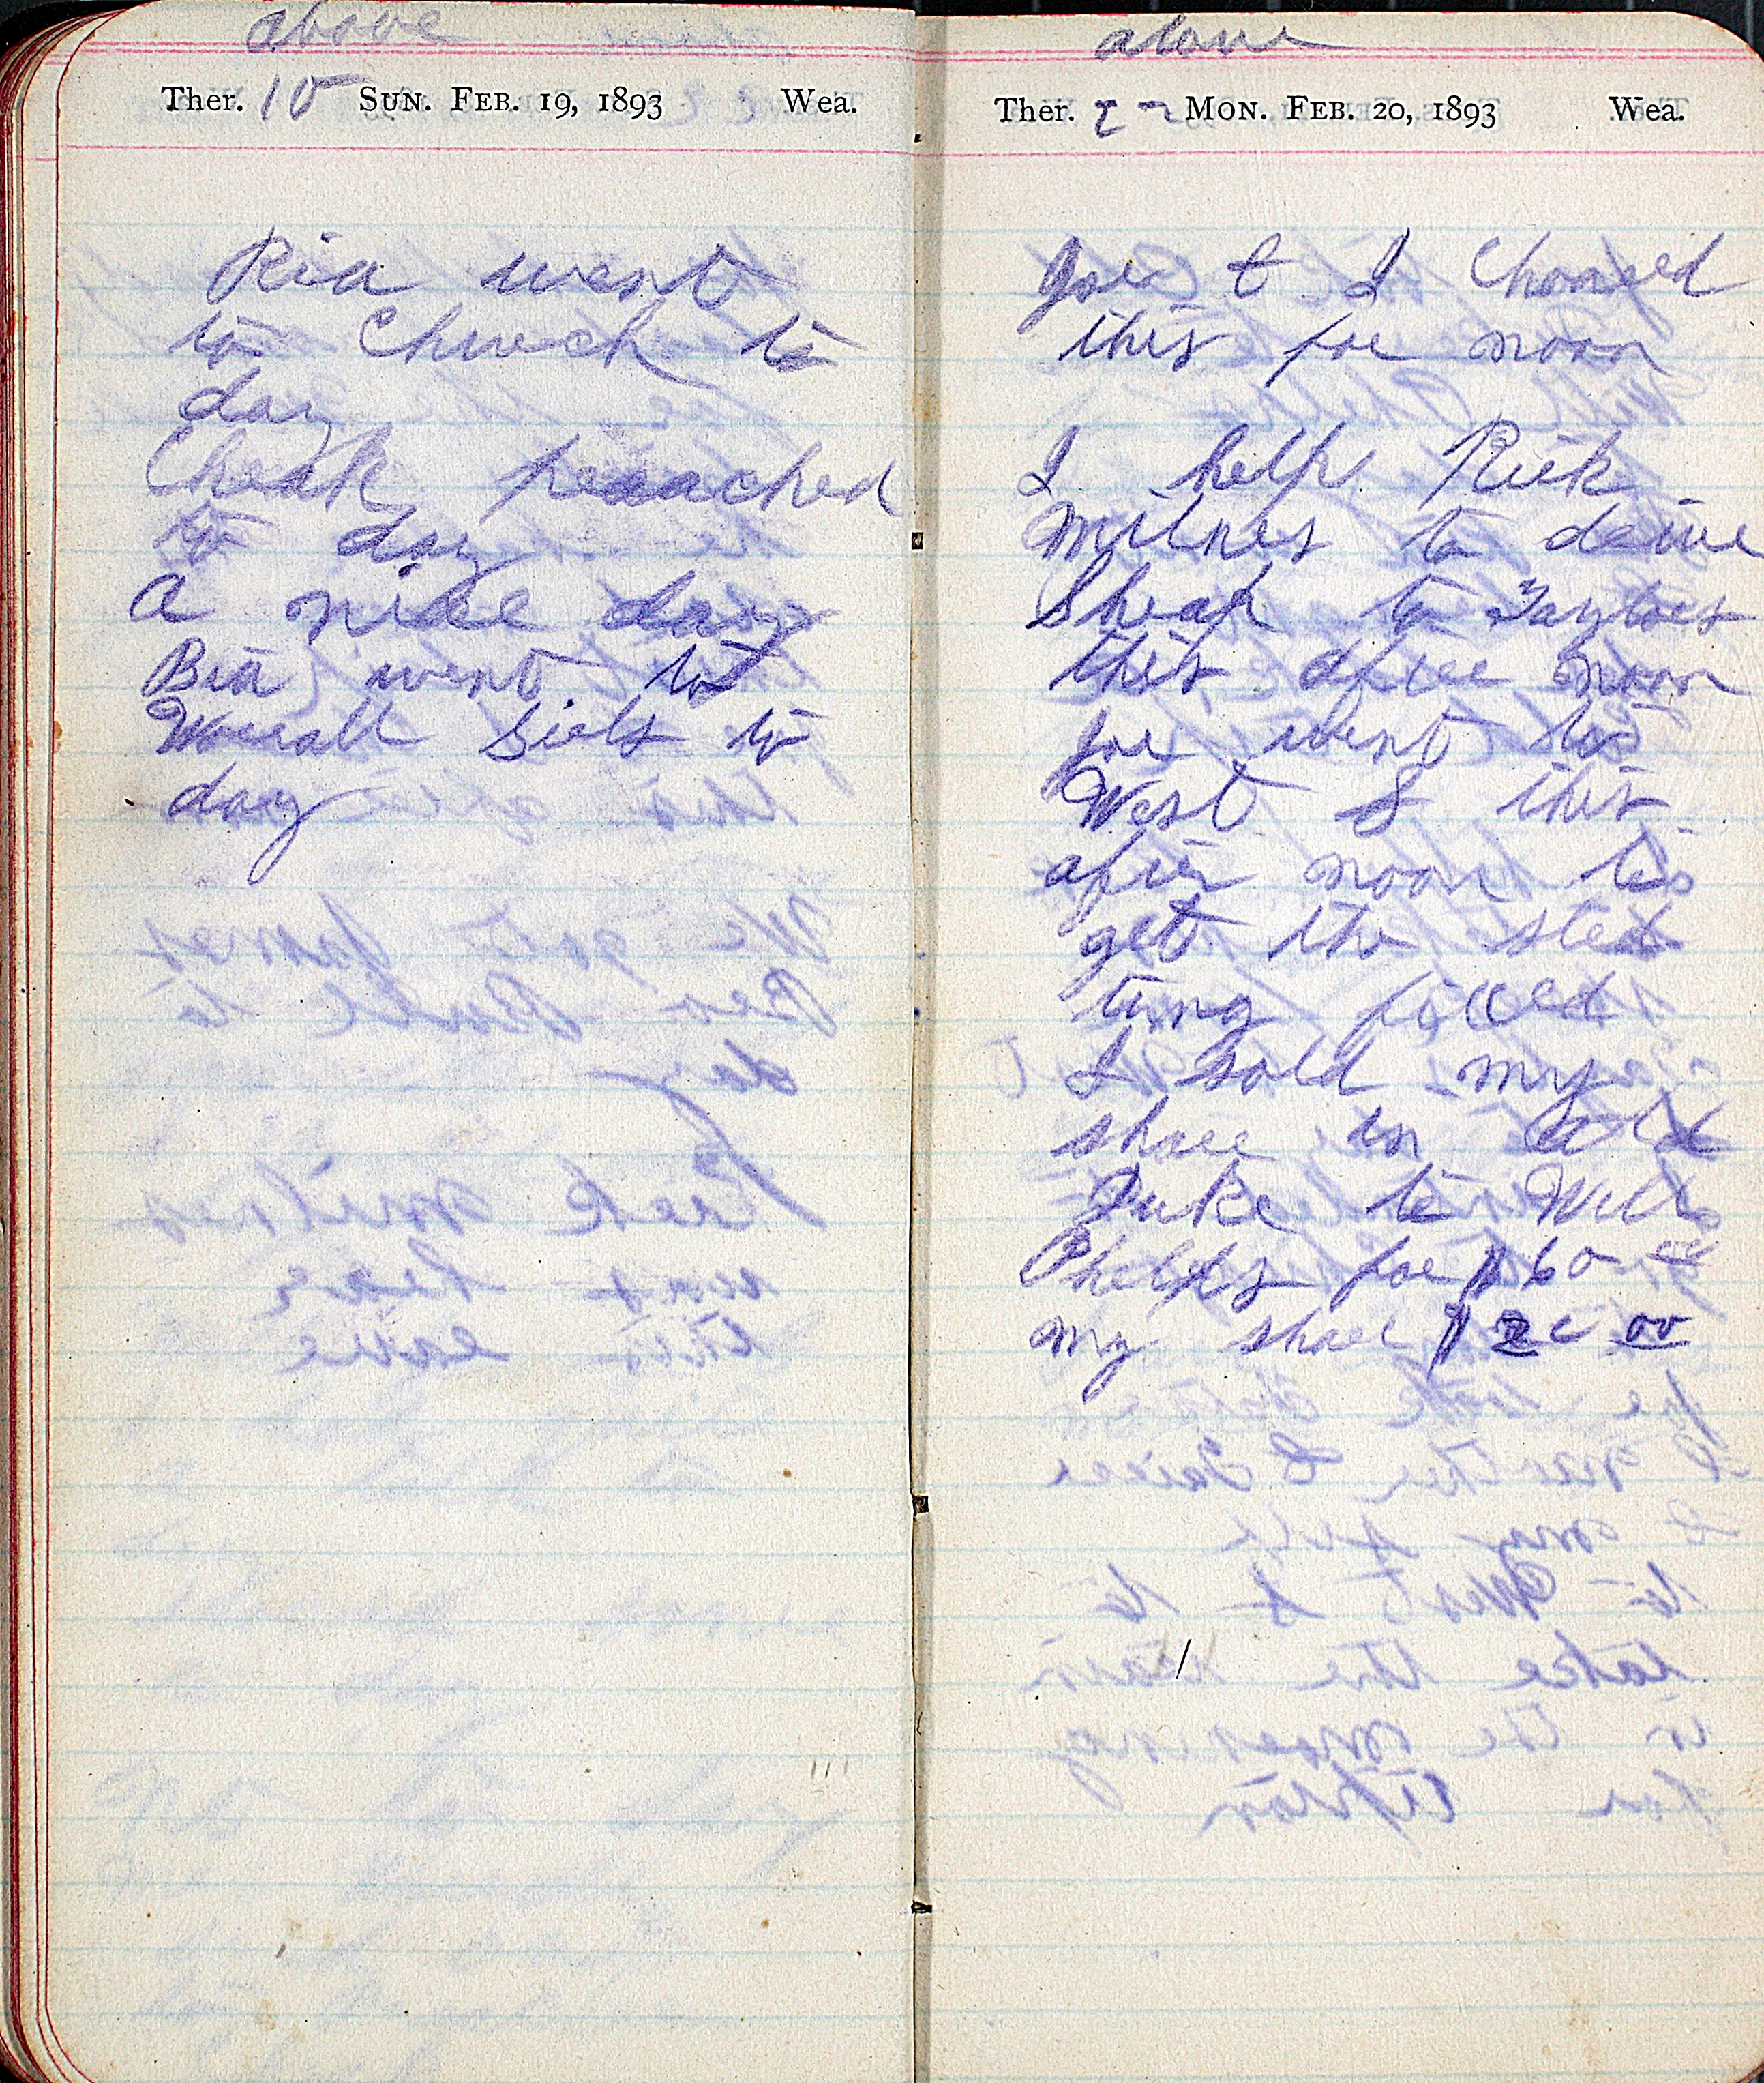 above
Ther. 10 SUN. FEB. 19, 1893 Wea.
Ria went
to Church to
day
Cheak preached
to day
a nice day
Bin went to
Worrall Girls to
day
above
Ther. MON. FEB. 20, 1893 Wea.
Joe & I Chored
this for noon
I help Rick
Milnes to drive
Sheap to Taylors
this after noon
Joe went to
West S this
after noon to
get the
tung filled
I sold my
share in old
Duke to Will
Phelps for $60 00
my share $20 00